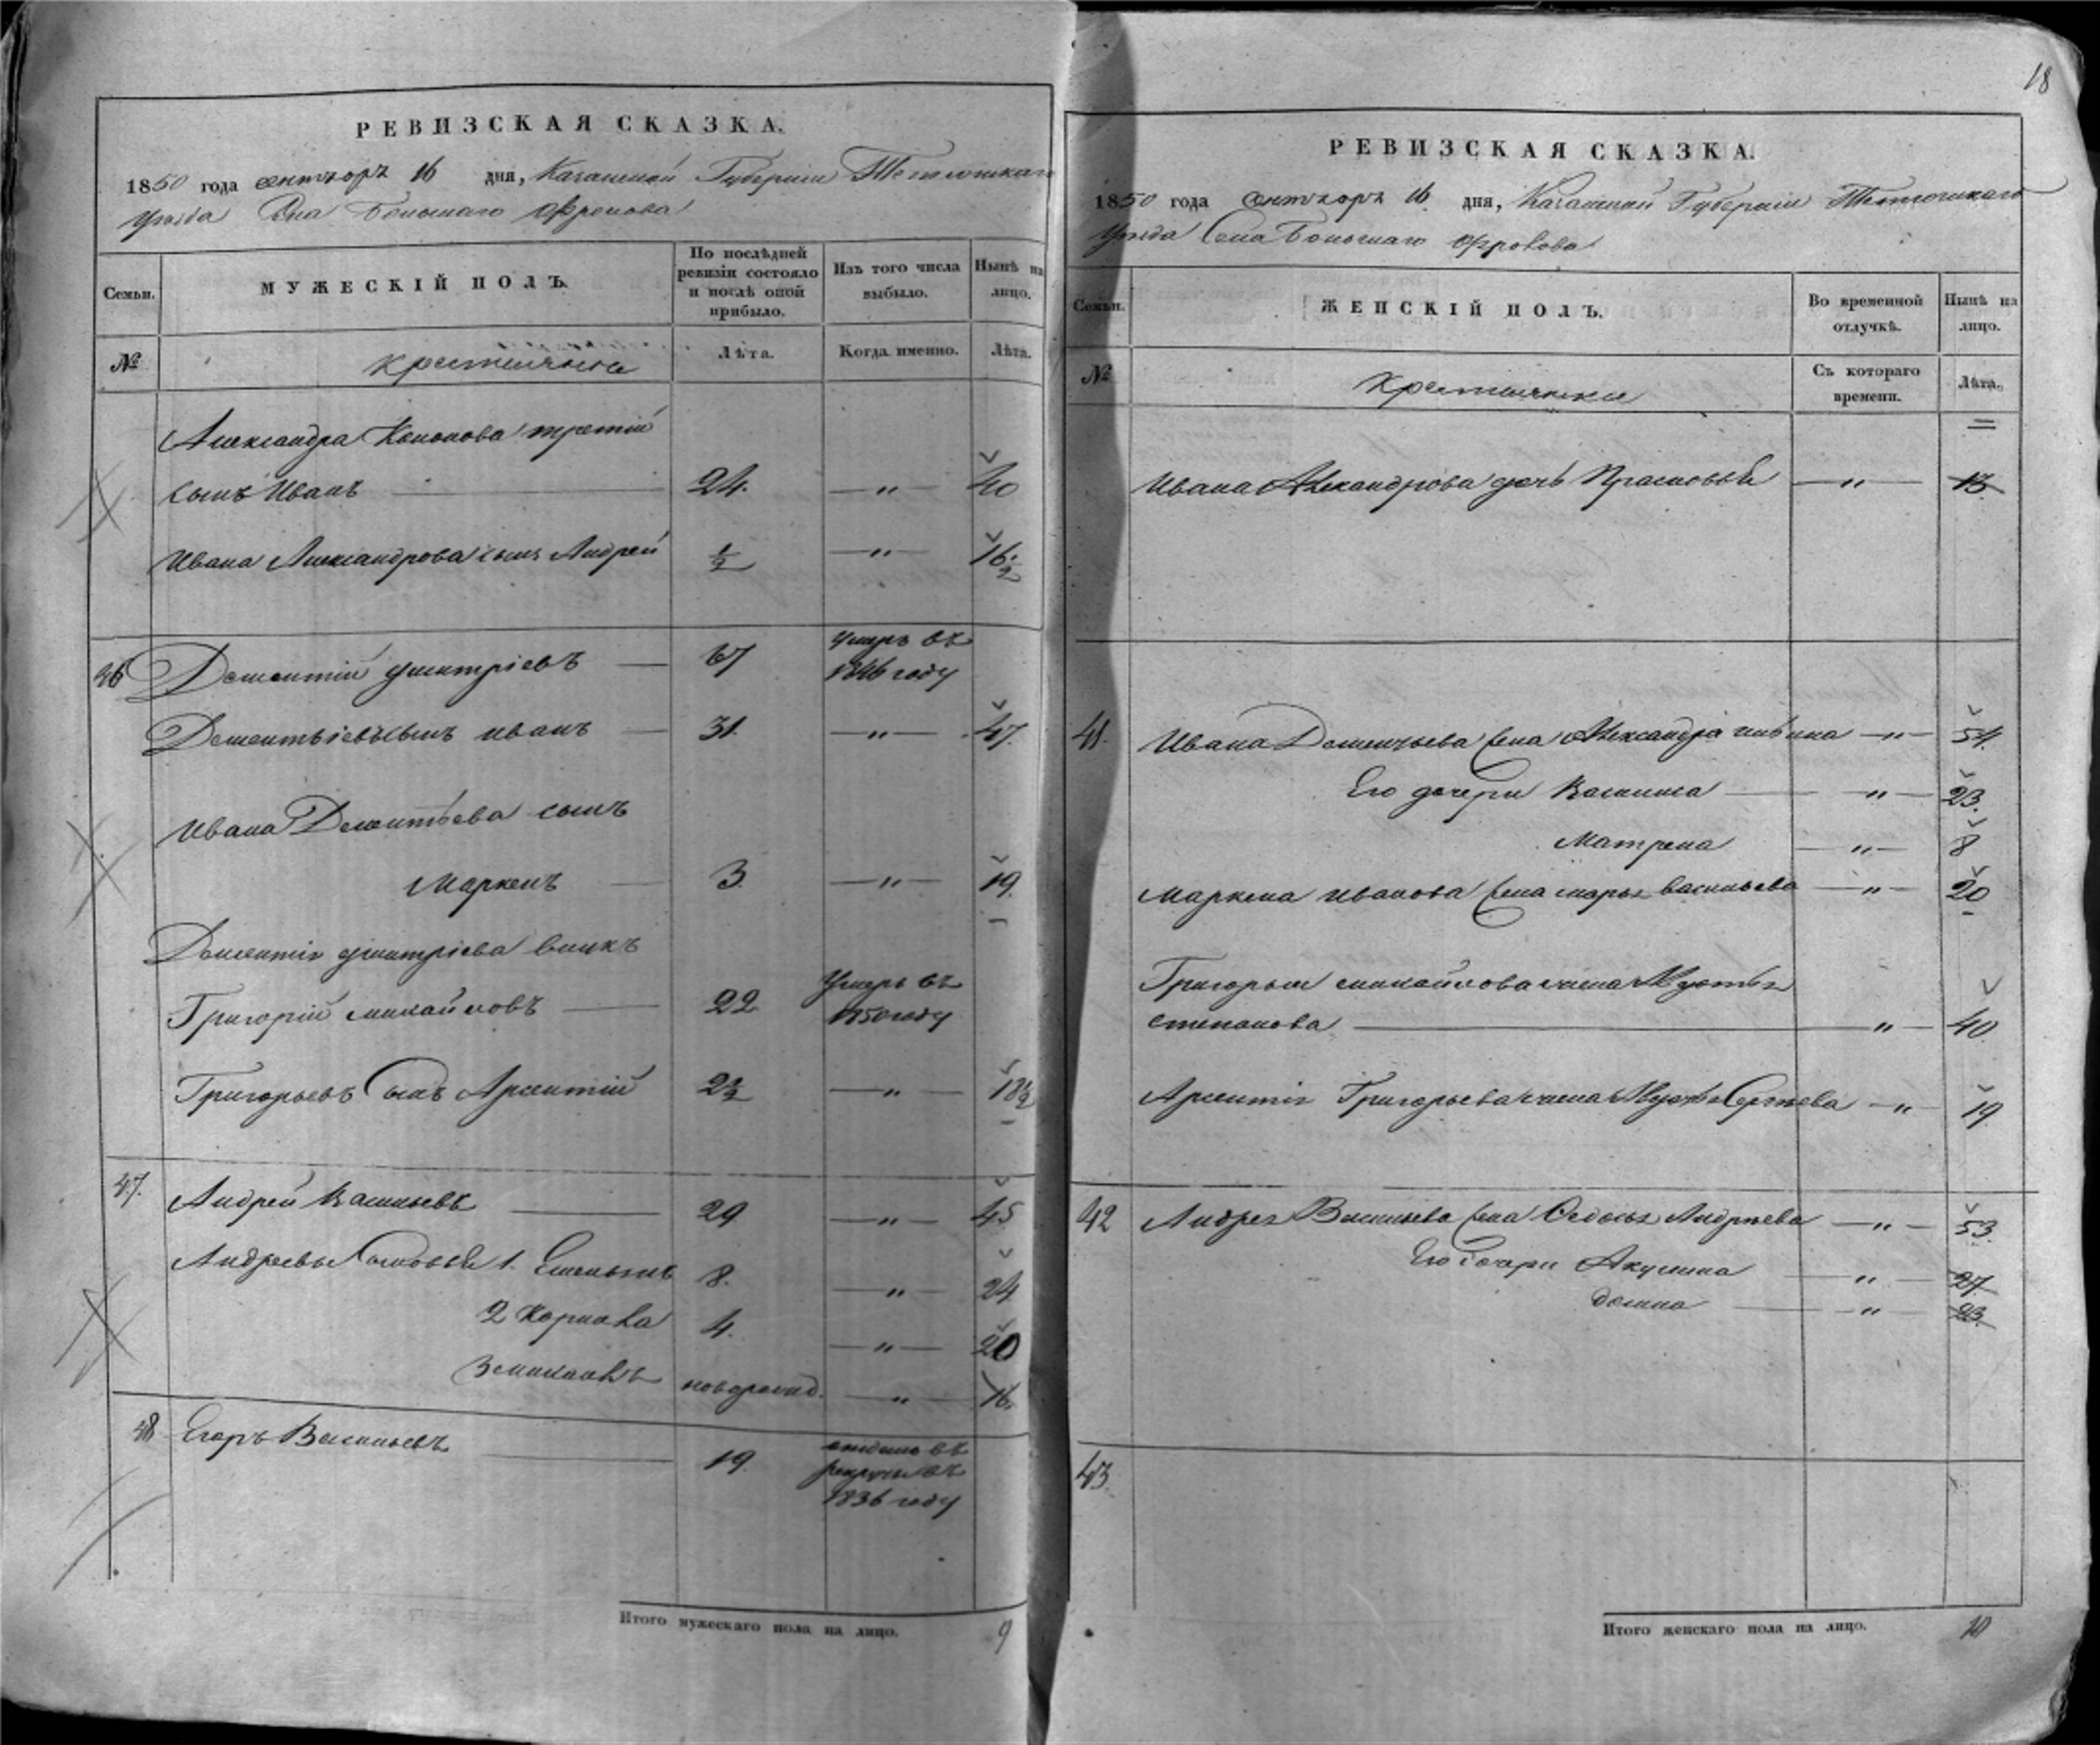 РЕВИЗСКАЯ СКАЗКА.
1850 года сентября 16 дня, Казанской Губернии Тетюшскаго
уезда Села Большаго Фролова
Семьи.
МУЖЕСКІЙ ПОЛЪ.
По послѣдней ревизіи состояло и послѣ оной прибыло.
Изъ того числа выбыло.
Нынѣ на лицо.
№
крестьяне
Лѣта.
Когда именно.
Лѣта.
Александра Кононова третій
сынъ Иванъ 24. — " — 40
Ивана Александрова сынъ Андрей ½ — " — 16½
46 Дементій Дмитріевъ — 67 умеръ въ
1846 году
Дементьіевъ сынъ иванъ — 31. — " — 47.
Ивана Дементьева сынъ
Маркелъ — 3. — " — 19.
Дементія Дмитріева внукъ
Григорій михайловъ — 22. Умеръ въ
1850 году
Григорьевъ сынъ Арсентій 2½ — " — 18½
47. Андрей Васильевъ — 29 — " — 45
Андреевы сыновья 1. Емельянъ 8. — " — 24
2 4. — " — 20
3 новорожд. — " — 16.
48 Егоръ Васильевъ — 19. отданъ въ
рекруты въ
1836 году
Итого мужескаго пола на лицо. 9
18
РЕВИЗСКАЯ СКАЗКА.
1850 года сентября 16 дня, Казанской Губерніи Тетюшскаго
уезда Села Большаго Фролова
Семьи.
ЖЕНСКІЙ ПОЛЪ.
Во временной отлучкѣ.
Нынѣ на лицо.
№
Крестьянки
Съ котораго времени.
Лѣта.
Ивана Александрова дочь Прасковья — " — 13.
41. Ивана Дементьева жена Александра — " — 54.
Его дочери Василиса — " — 23.
Матрена — " — 8
Маркела иванова жена марья васильева — " — 20
Григорья михайлова жена Авдотья
степанова — " — 40
Арсентія Григорьева жена Авдотья Сергѣева — " — 19
42 Андрея Васильева жена Федосья Андрѣева — " — 53.
Его дочери Акулина — " — 27
домна — " — 23.
43.
Итого женскаго пола на лицо. 10